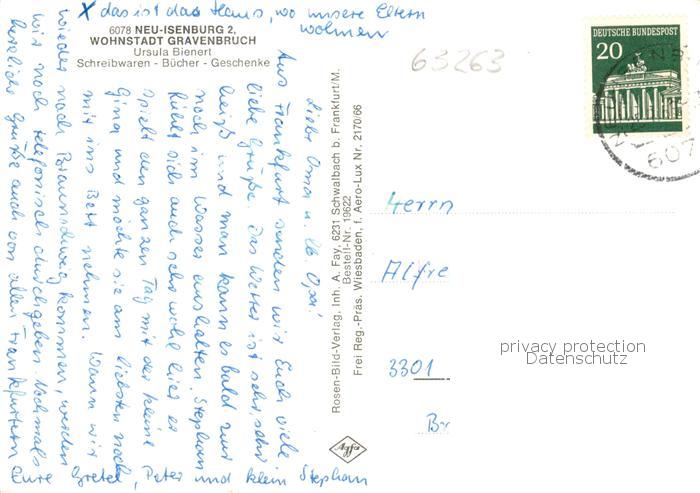 X das ist das Haus, wo unsere Eltern
wohnen
6078 NEU-ISENBURG 2,
WOHNSTADT GRAVENBRUCH
Ursula Bienert
Schreibwaren - Bücher - Geschenke
Liebe Oma u. lb Opa!
Aus Frankfurt senden wir Euch viele
liebe Grüße. Das Wetter ist sehr, sehr
heiß und man kann es bald nur
noch im Wasser aushalten. Stephan
fühlt sich auch sehr wohl hier er
spielt den ganzen Tag mit der kleine
Gina und möchte sie am liebsten noch
mit ins Bett nehmen. Wann wir
wieder nach Braunschweig kommen, werden
wir noch telefonisch durchgeben. Nochmals
herzliche Grüße auch von allen Frankfurtern
Eure Gretel, Peter und klein Stephan
Rosen-Bild-Verlag, Inh. A. Fay, 6231 Schwalbach b. Frankfurt/M.
Bestell-Nr. 19622
Frei Reg.-Präs. Wiesbaden, f. Aero-Lux Nr. 2170/66
Agfa
63263
DEUTSCHE BUNDESPOST
20
607
Herrn
Alfre
3301
Br
privacy protection
Datenschutz